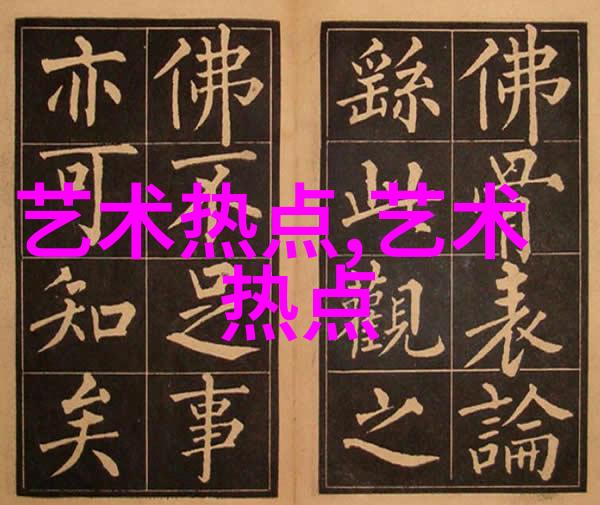 佛骨表論
繇此觀之
佛不足事
亦可知矣
艺术热点,艺术
热点